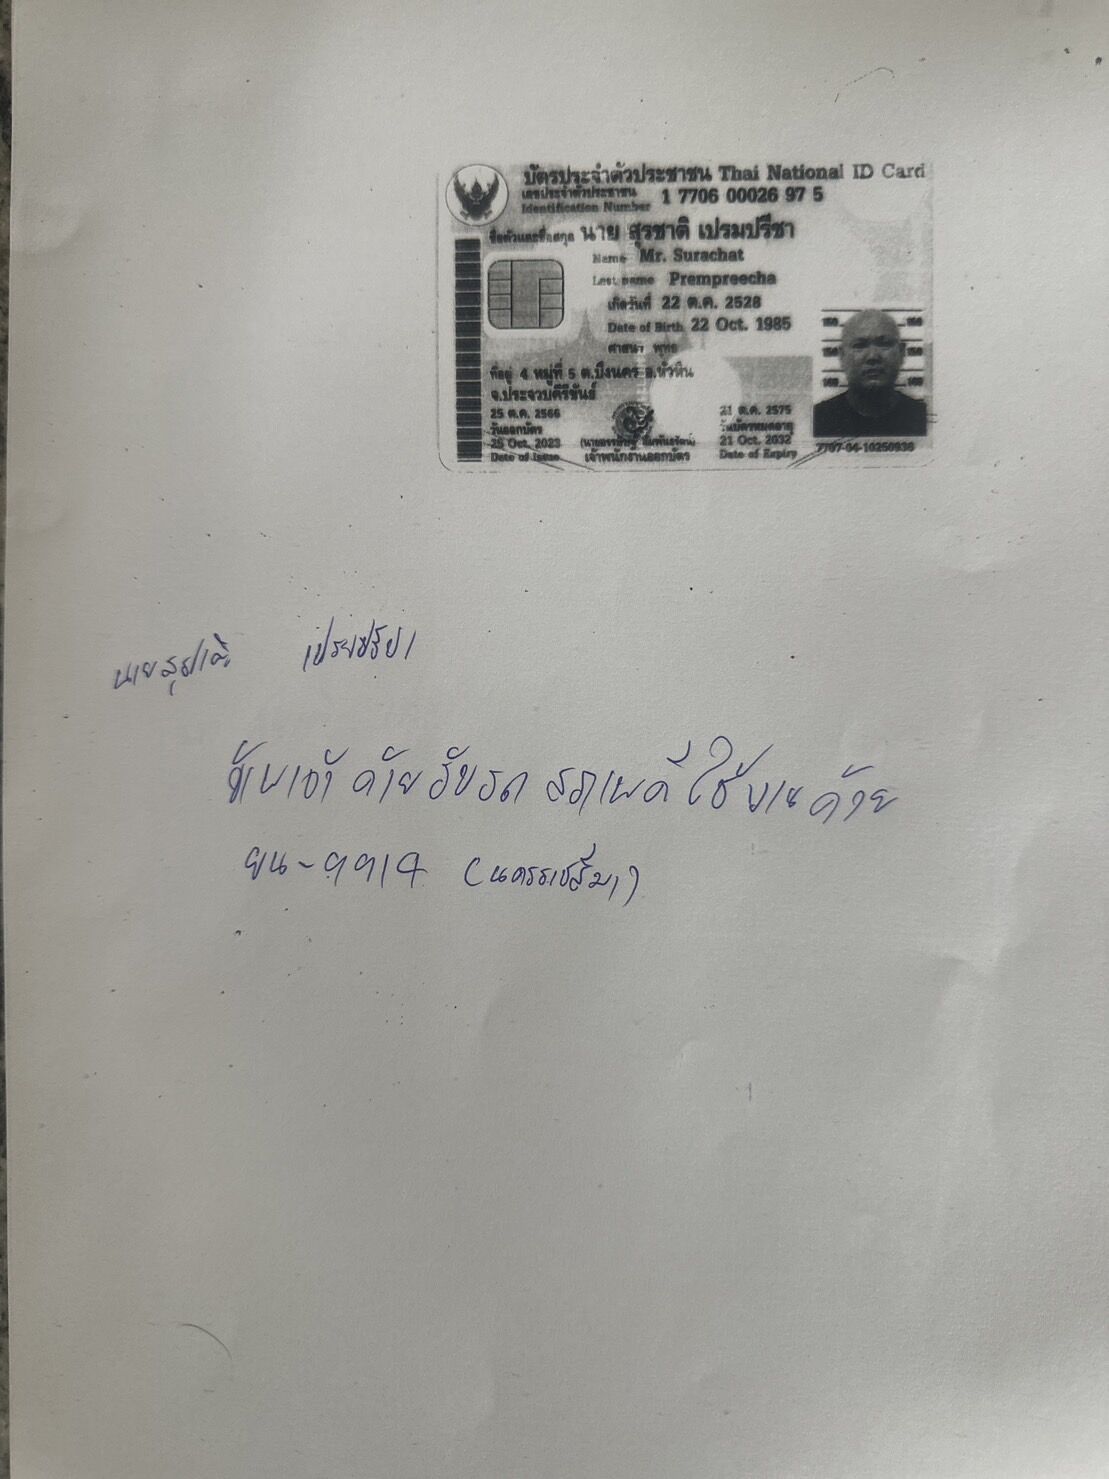 บัตรประจำตัวประชาชน Thai National ID Card
เลขประจำตัวประชาชน
Identification Number 1 7706 00026 97 5
ชื่อตัวและชื่อสกุล นาย สุรชาติ เปรมปรีชา
Name Mr. Surachat
Last name Prempreecha
เกิดวันที่ 22 ต.ค. 2528
Date of Birth 22 Oct. 1985
ศาสนา พุทธ
ที่อยู่ 4 หมู่ที่ 5 ต.บึงนคร อ.หัวหิน
จ.ประจวบคีรีขันธ์
25 ต.ค. 2566
วันออกบัตร
25 Oct. 2023
Date of Issue
เจ้าพนักงานออกบัตร
21 ต.ค. 2575
วันบัตรหมดอายุ
21 Oct. 2032
Date of Expiry
160 160
150 150
140 140
7707-04-10250938
นายสุรชาติ เปรมปรีชา
ข้าพเจ้า ได้รับรถ สภาพดี ใช้งานได้